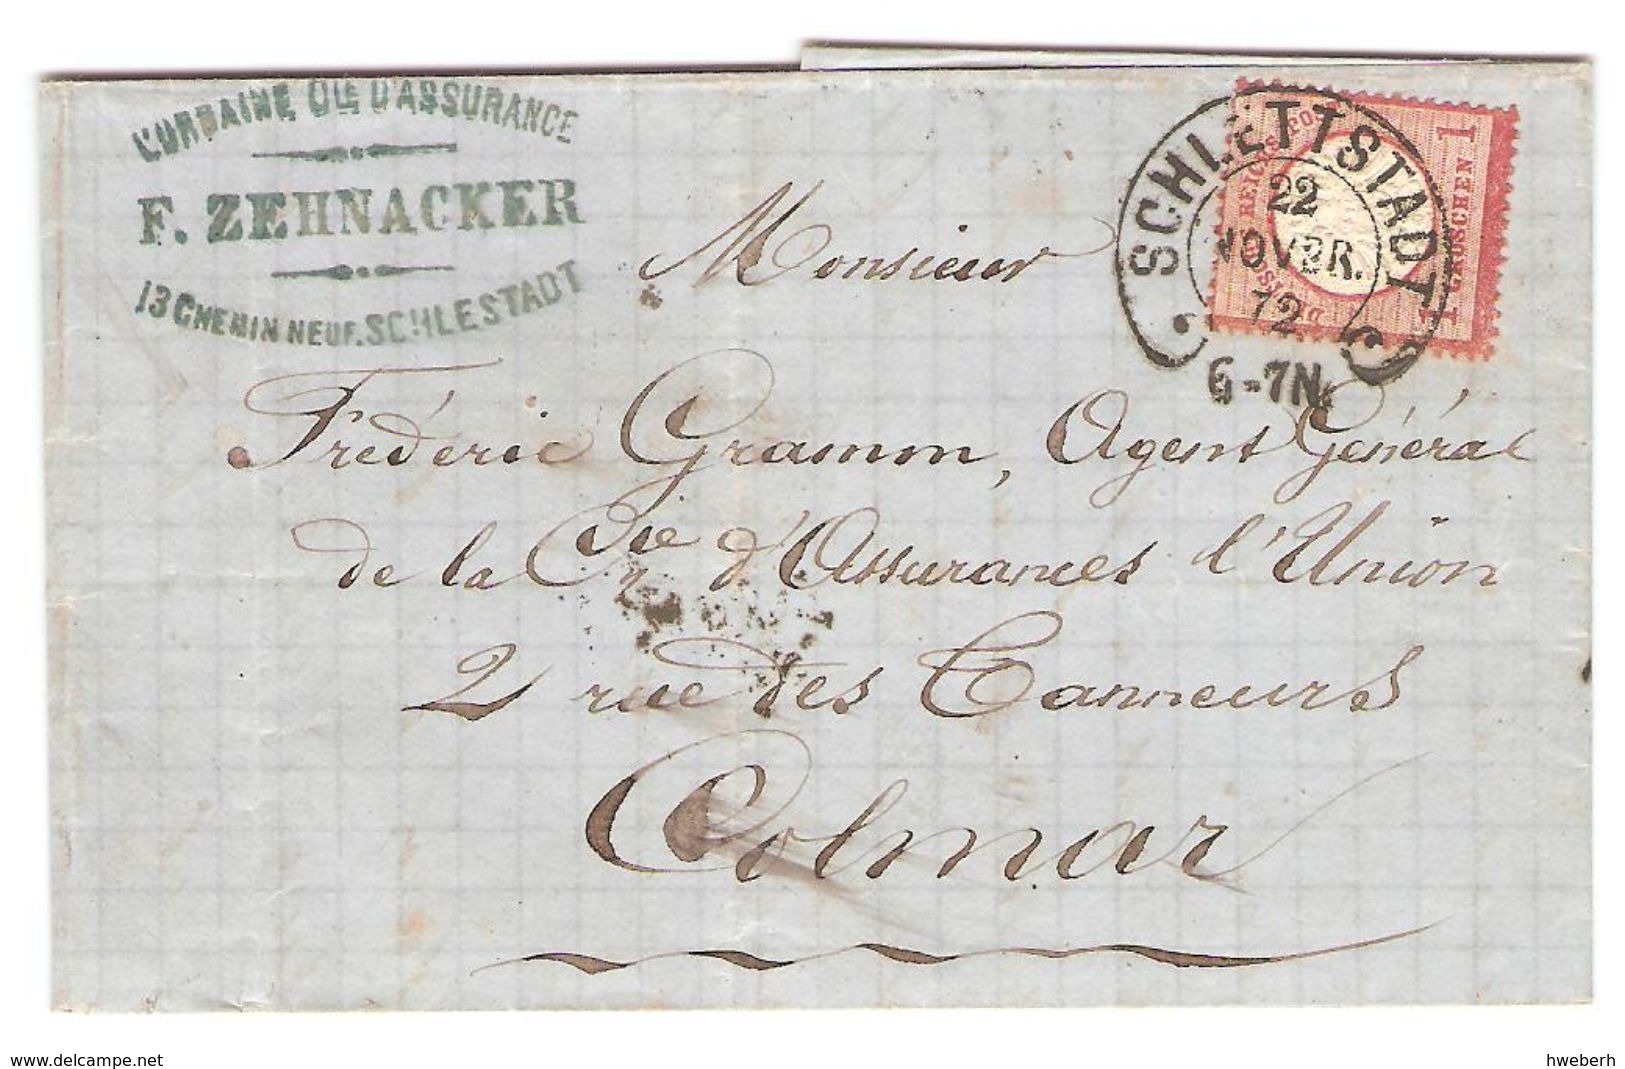 LORRAINE CIE D'ASSURANCE
F. ZEHNACKER
13 CHEMIN NEUF. SCHLESTADT
SCHLETTSTADT
22
NOVBR.
72
6-7N.
1 GROSCHEN 1
Monsieur
Fréderic Gramm, Agent Général
de la Cie d'Assurances l'Union
2 rue des Tanneurs
Colmar
www.delcampe.net
hweberh